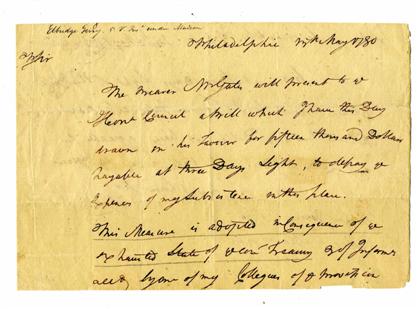 Elbridge Gerry, V Pres under Madison
Philadelphia May 1780
Sir
The Bearer Mr Gates will present to ye
Hono Council a Bill which I have this Day
drawn in his Favour for fifteen thousand Dollars
payable at three Days Sight, to defray ye
Expences of my Subsistence in this place.
This Measure is adopted in Consequence of ye
exhausted State of ye Treasury & of Inform
by one of my Collegues of